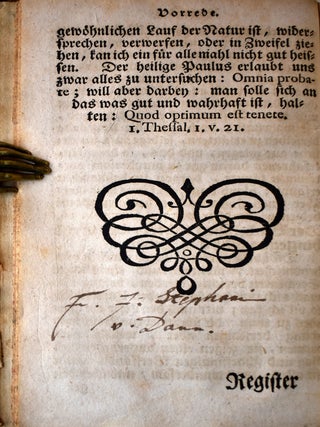 Vorrede.
gewöhnlichen Lauf der Natur ist, wider-
sprechen, verwerfen, oder in Zweifel zie-
hen, kan ich ein für allemahl nicht gut heis-
sen. Der heilige Paulus erlaubt uns
zwar alles zu untersuchen: Omnia proba-
te; will aber darbey: man solle sich an
das was gut und wahrhaft ist, hal-
ten: Quod optimum est tenete.
1. Thessal. 1. v. 21.
F. J. Stephani
v. Dann.
Register